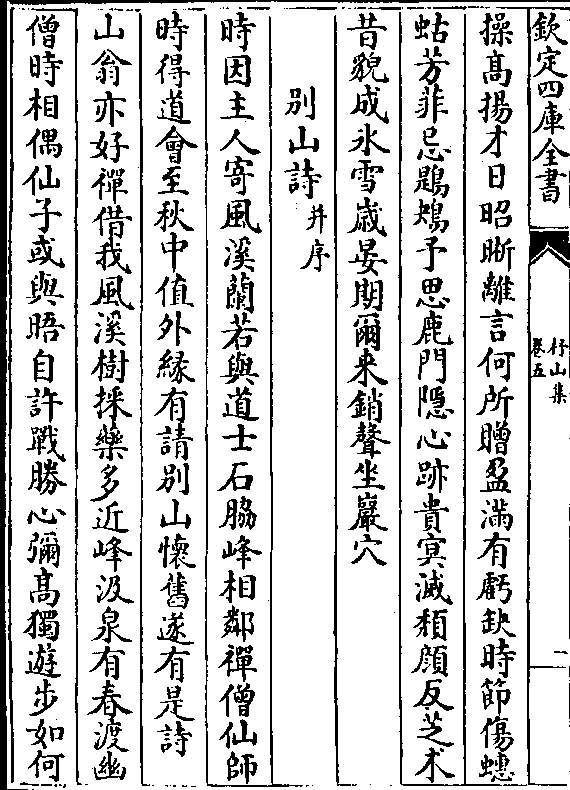 欽定四庫全書
杼山集
卷五
二
操髙揚才日昭晰離言何所贈盈滿有虧缺時節傷蟪
蛄芳菲忌鶗鴂予思鹿門隱心跡貴冥滅頽顔反芝术
昔貌成氷雪歳晏期爾来銷聲坐巖穴
別山詩并序
時因主人寄風溪蘭若與道士石脇峰相鄰禪僧仙師
時得道會至秋中值外緣有請别山懐舊遂有是詩
山翁亦好禪借我風溪樹採藥多近峰汲泉有春渡幽
僧時相偶仙子或與晤自許戰勝心彌髙獨遊步如何